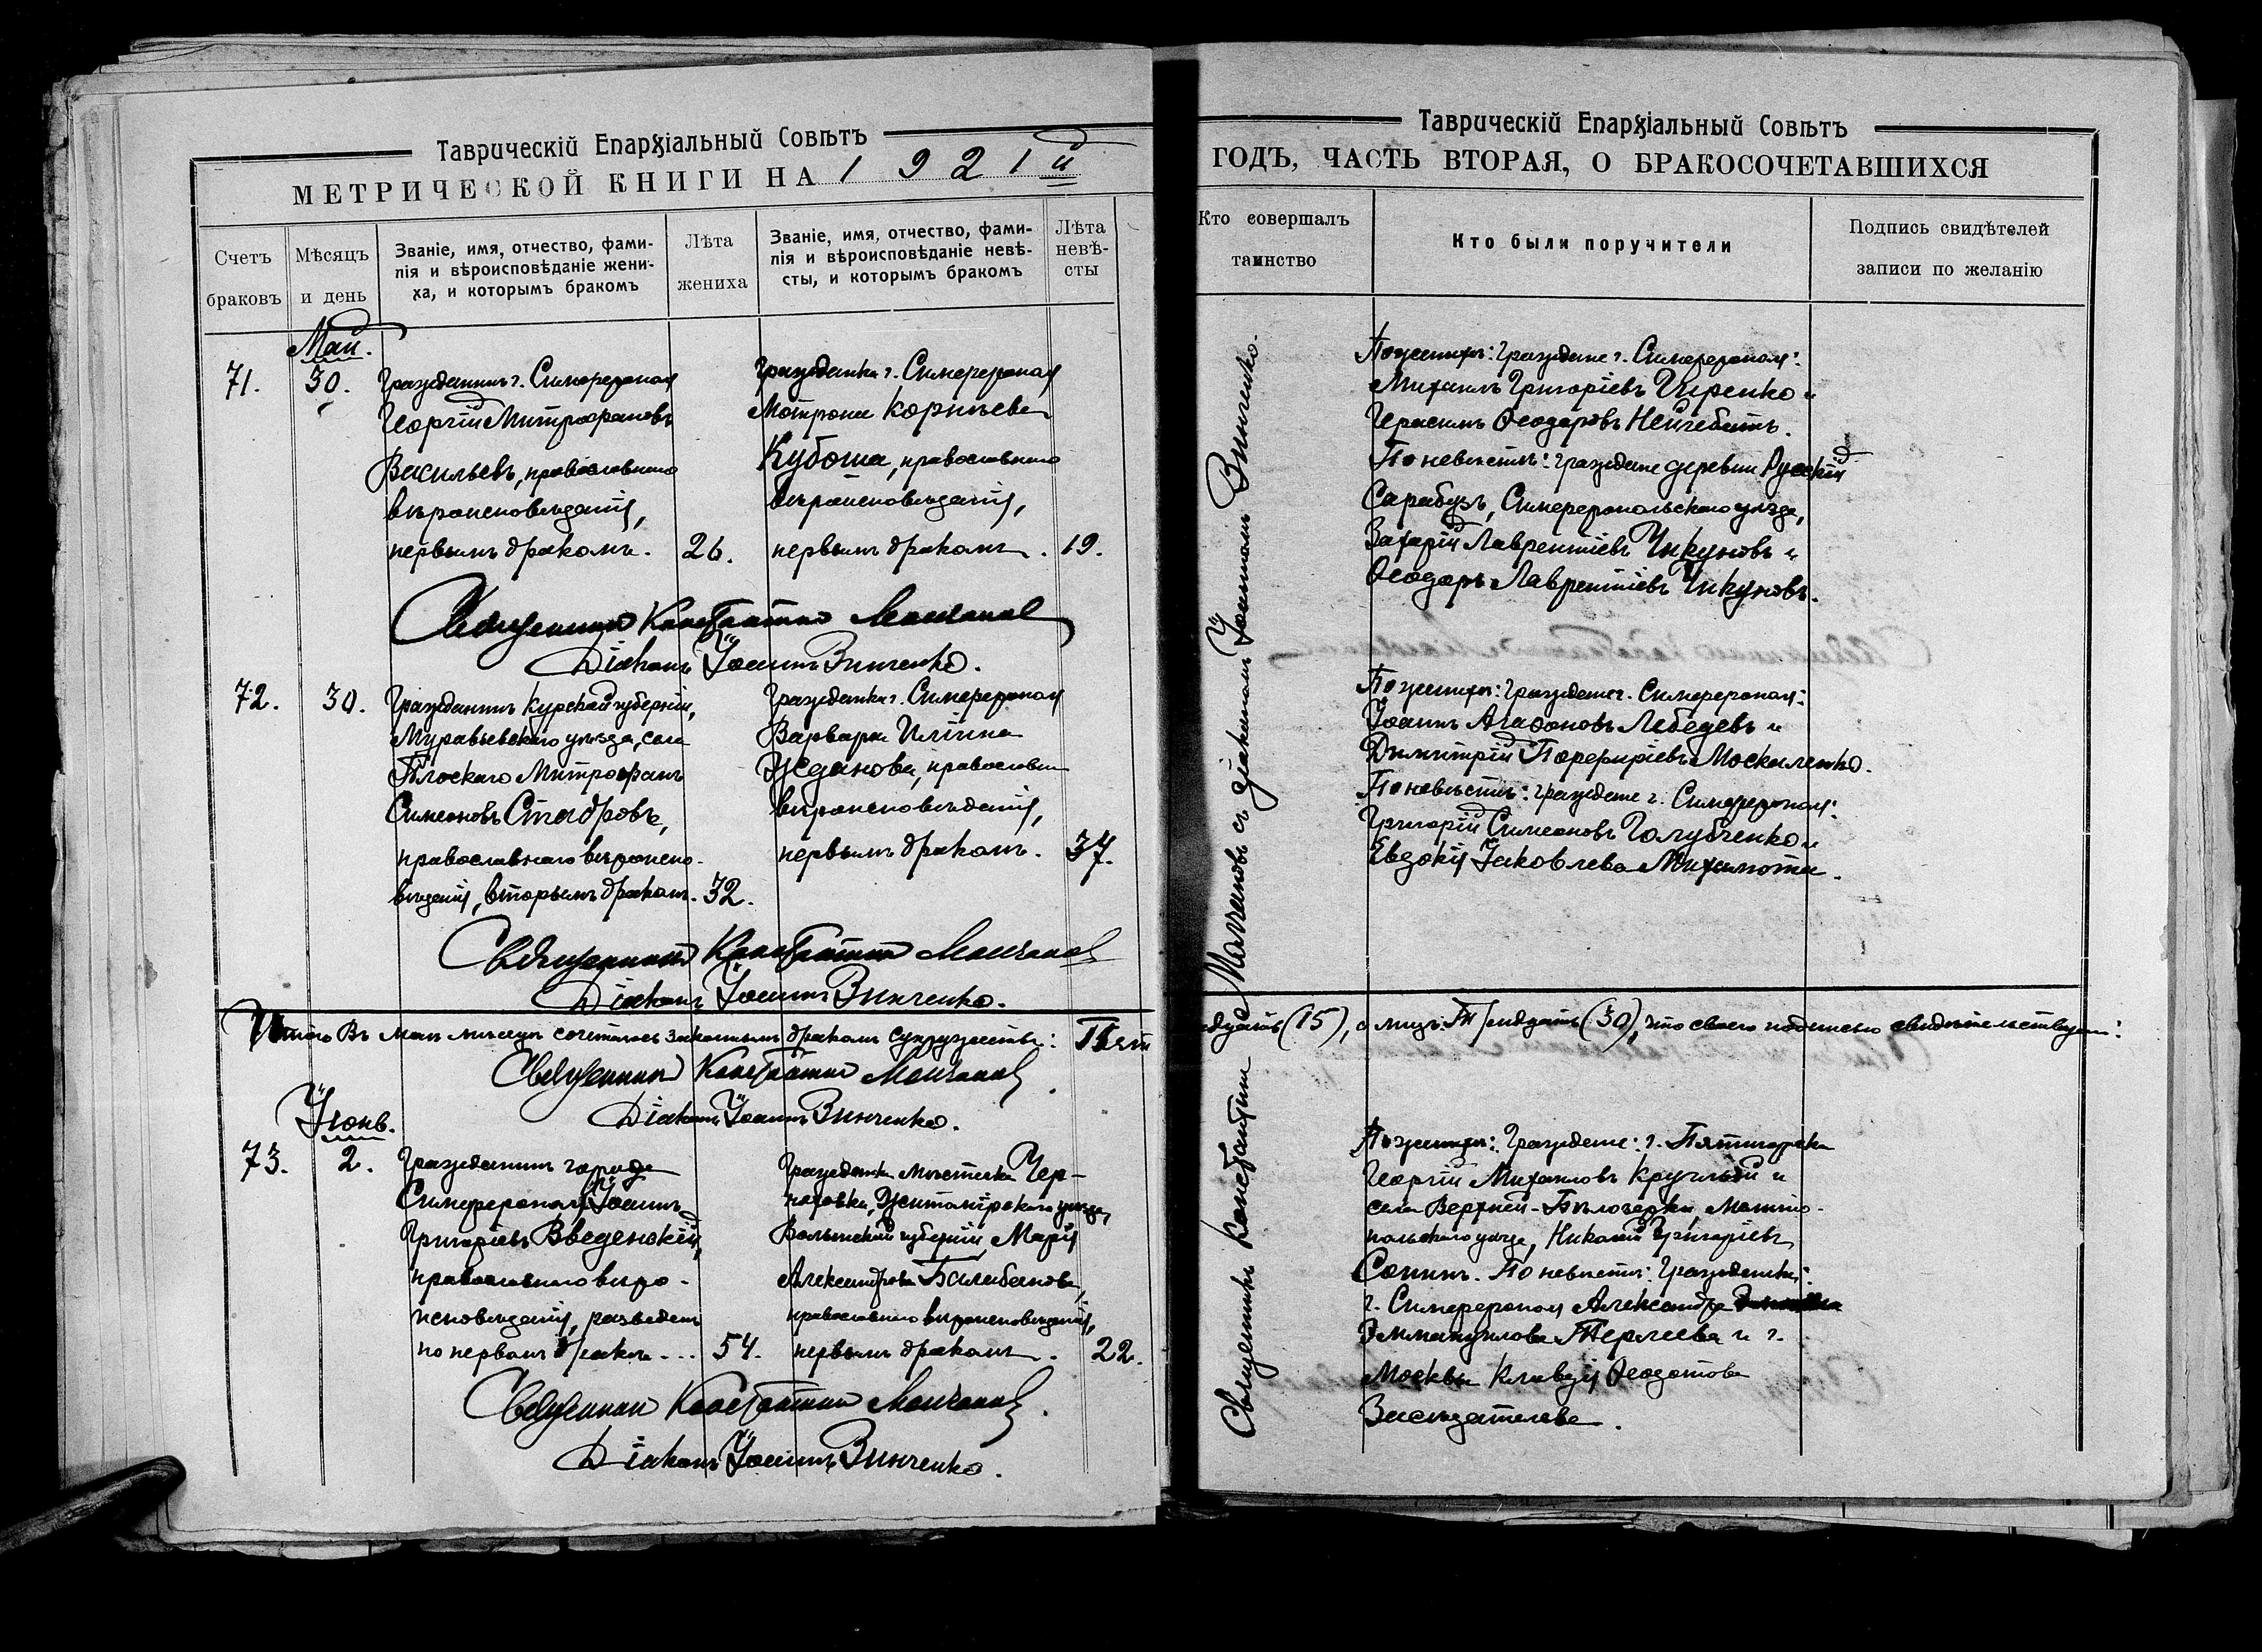 Таврическій Епархіальный Совѣтъ
МЕТРИЧЕСКОЙ КНИГИ НА 1921й
Счетъ браковъ
Мѣсяцъ и день
Званіе, имя, отчество, фами-
лія и вѣроисповѣданіе жени-
ха, и которымъ бракомъ
Лѣта жениха
Званіе, имя, отчество, фами-
лія и вѣроисповѣданіе невѣ-
сты, и которымъ бракомъ
Лѣта
невѣ-
сты
Май.
71.
30.
Гражданинъ г. Симферополя
Георгій Митрофановъ
Васильевъ, православнаго
вѣроисповѣданія,
первымъ бракомъ.
26.
Гражданка г. Симферополя
Мотрона Корнѣева
Кубоша, православнаго
вѣроисповѣданія,
первымъ бракомъ.
19.
Священникъ Константинъ Молчановъ
Діаконъ Іоаннъ Винченко.
72.
30.
Гражданинъ Курской губерніи,
уѣзда, села
Плоскаго Митрофанъ
Симеоновъ
православнаго вѣроиспо-
вѣданія, вторымъ бракомъ.
32.
Гражданка г. Симферополя
Варвара Иліина
Жданова, православн.
вѣроисповѣданія,
первымъ бракомъ.
37.
Священникъ Константинъ Молчановъ
Діаконъ Іоаннъ Винченко.
Итого въ маѣ мѣсяцѣ сочеталось законнымъ бракомъ супружествъ: Пят
Священникъ Константинъ Молчановъ.
Діаконъ Іоаннъ Винченко.
Іюнь.
73.
2.
Гражданинъ города
Симферополя Іоаннъ
Григоріевъ Введенскій,
православнаго вѣро-
исповѣданія, разведен
по первомъ бракѣ...
54.
Гражданка мѣстечка Чер-
няховка, Житомірскаго уѣзда,
Волынской губерніи Марія
Александрова Балабанова,
православнаго вѣроисповѣданія,
первымъ бракомъ.
22.
Священникъ Константинъ Молчановъ.
Діаконъ Іоаннъ Винченко.
Таврическій Епархіальный Совѣтъ
ГОДЪ, ЧАСТЬ ВТОРАЯ, О БРАКОСОЧЕТАВШИХСЯ
Кто совершалъ
таинство
Кто были поручители
Подпись свидѣтелей
записи по желанію
Священникъ Константинъ Молчановъ съ діакономъ Іоанномъ Винченко.
По женихѣ: граждане г. Симферополя:
Михаилъ Григоріевъ и
Герасимъ Ѳеодоровъ
По невѣстѣ: граждане деревни Русскій
Сарабузъ, Симферопольскаго уѣзда,
Захарій Лаврентіевъ Чикуновъ и
Ѳеодоръ Лаврентіевъ Чикуновъ.
По женихѣ: граждане г. Симферополя:
Іоаннъ Агафоновъ Лебедевъ и
Димитрій Порфиріевъ Москаленко.
По невѣстѣ: граждане г. Симферополя:
Григорій Симеоновъ Голубченко и
Евдокія Іаковлева
надцать (15), а лицъ: Тридцать (30), что своею подписью свидѣтельствуемъ:
По женихѣ: Граждане: г. Пятигорска
Георгій Михаиловъ Круглый и
села Верхней-Бѣлозерки, Мелито-
польскаго уѣзда, Николай Григоріевъ
Сопинъ. По невѣстѣ: Гражданки:
г. Симферополя Александра
Эммануилова Терлеева и г.
Москвы Клавдія Ѳеодотова
Засѣдателева.